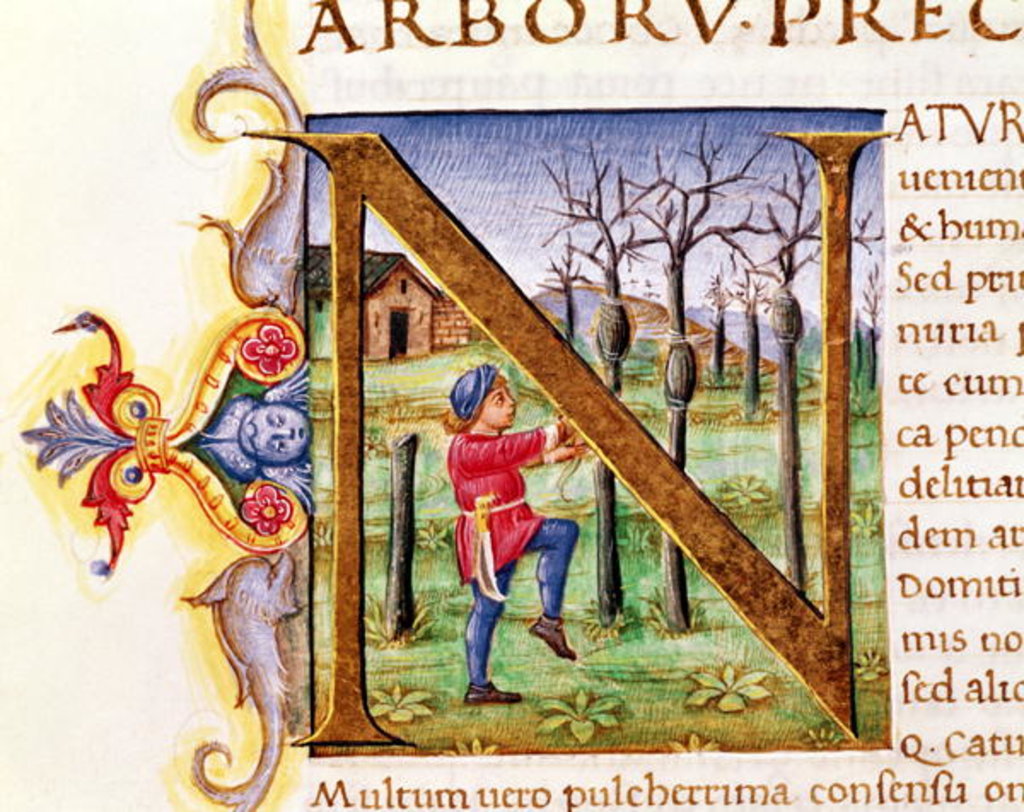 ARBORV·PREC
NATVR
uenien
& hum
Sed pri
nuria
te cum
ca pend
delitiar
dem ar
Domiti
mis no
sed alic
Q. Catu
Multum uero pulcherrima consensu on